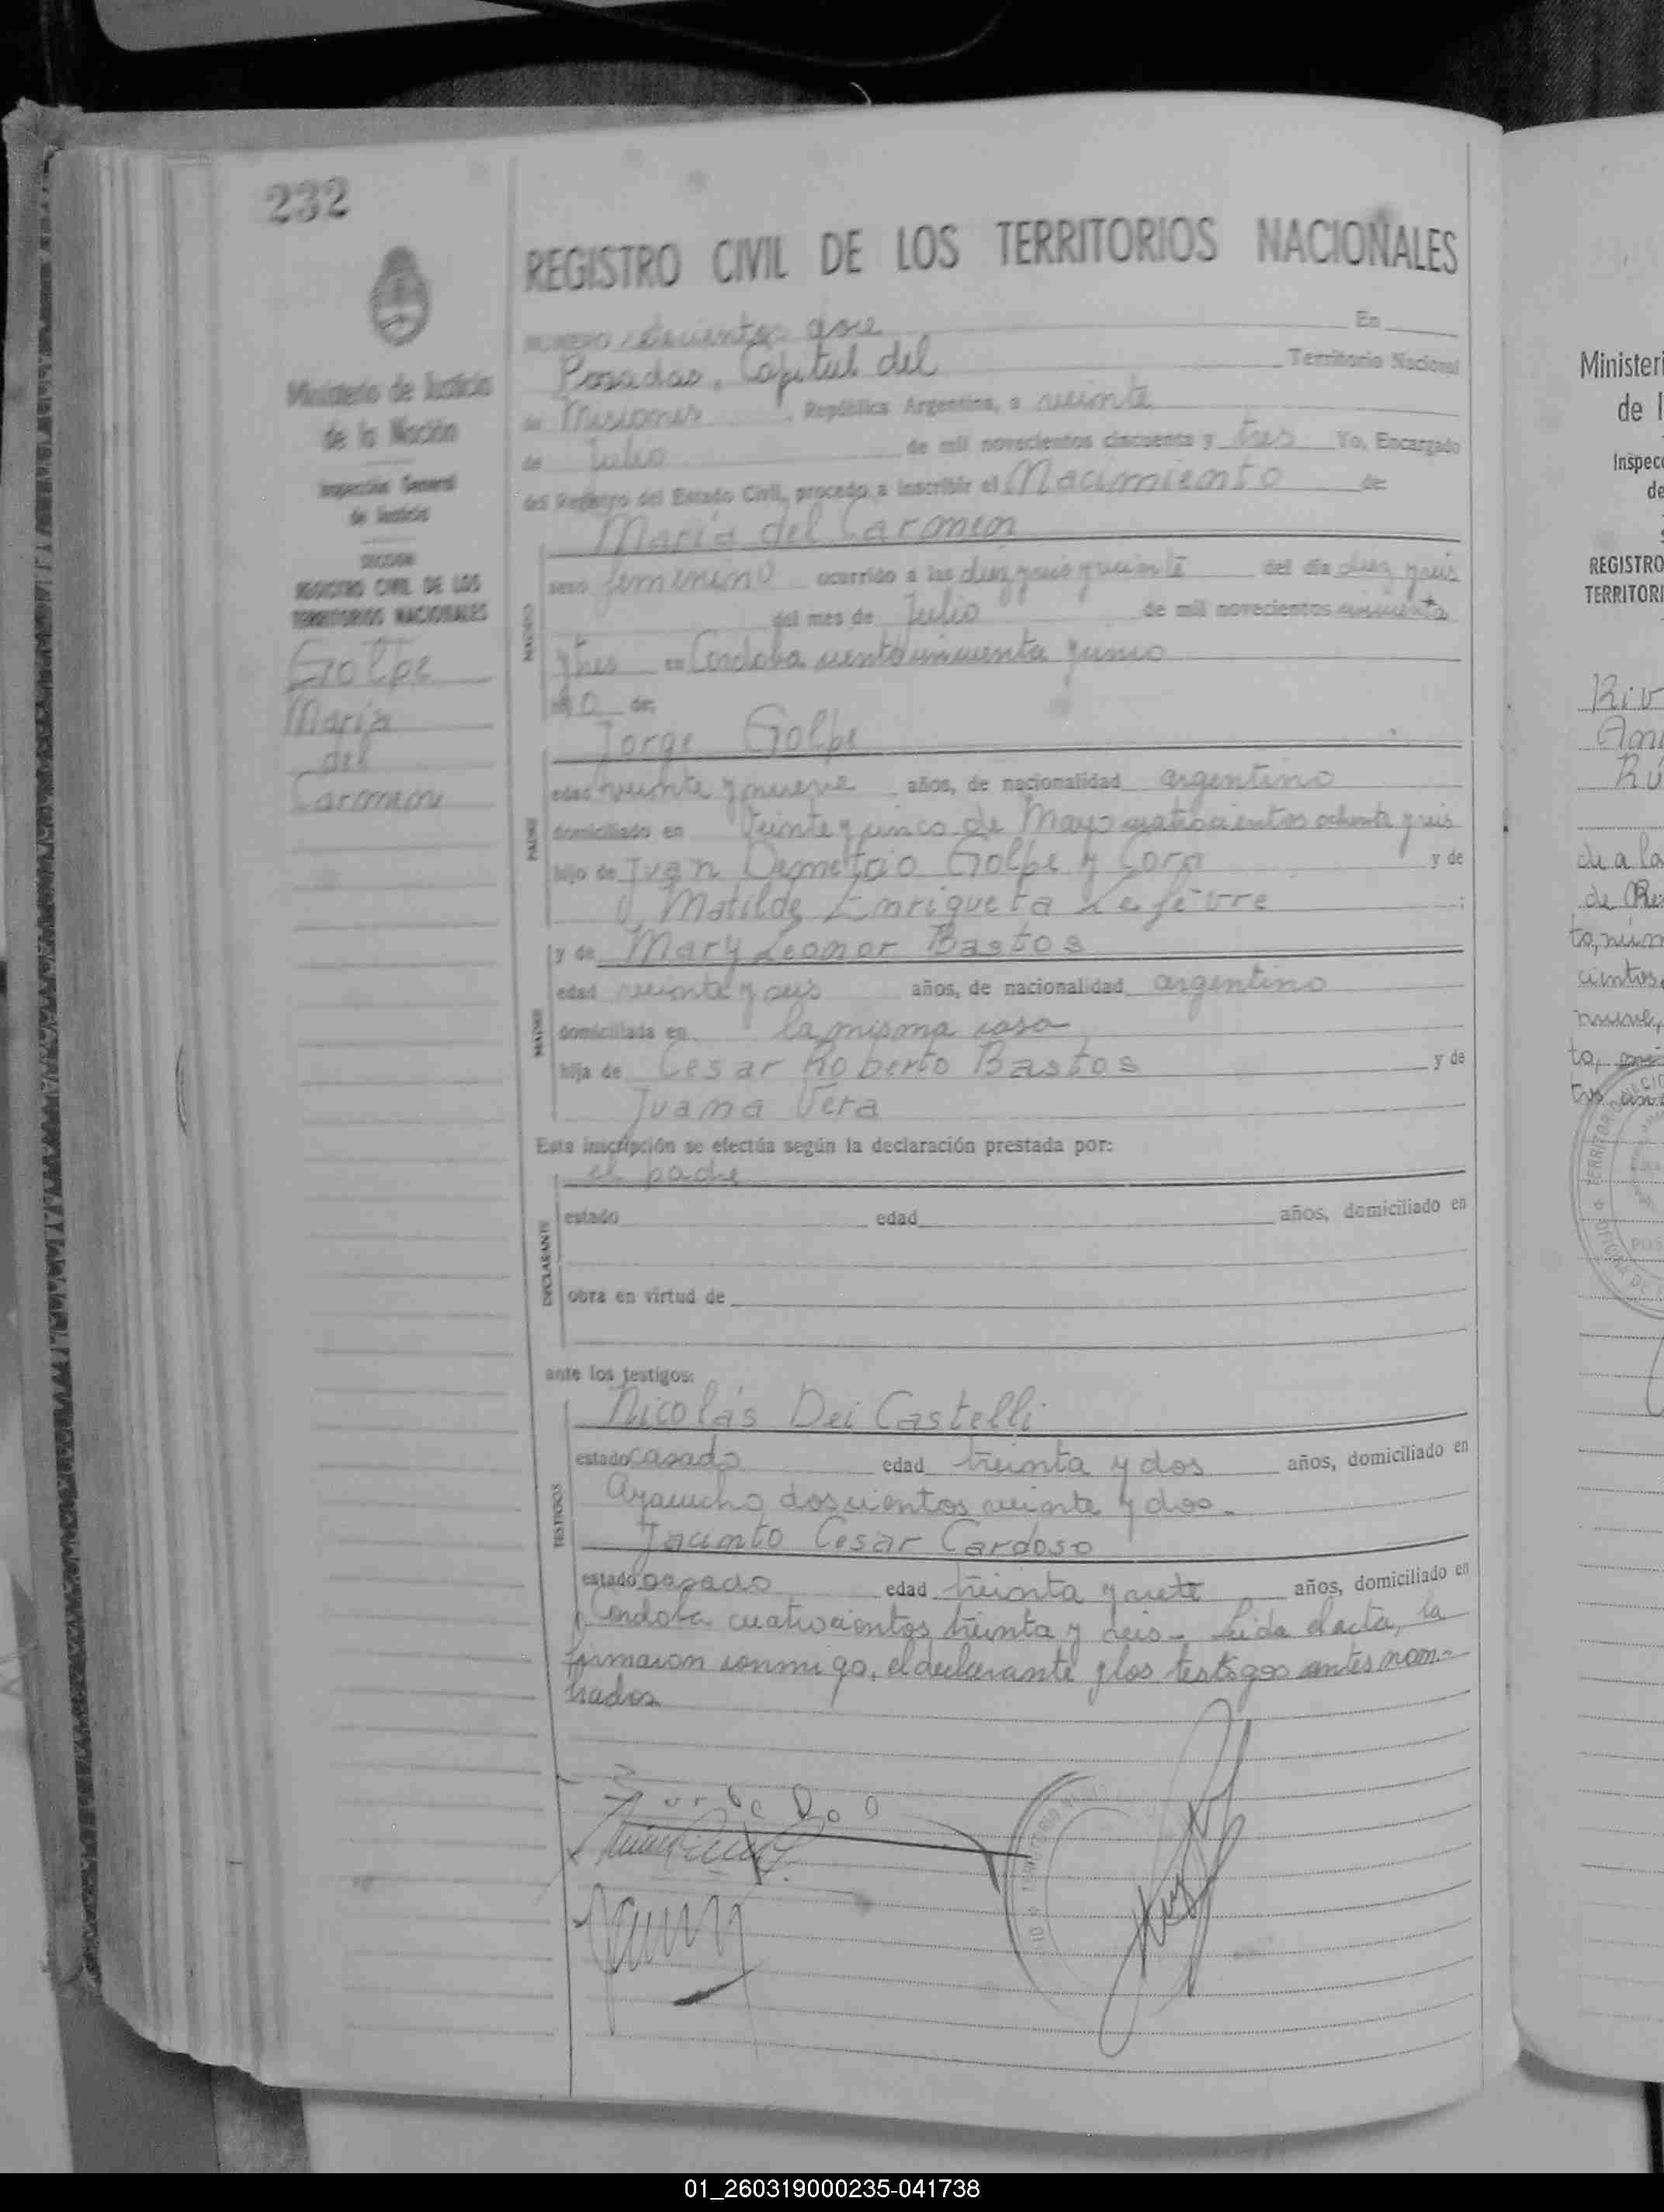 232
REGISTRO CIVIL DE LOS TERRITORIOS NACIONALES
Ministerio de Justicia
de la Nación
Inspección General
de Justicia
SECCION
REGISTRO CIVIL DE LOS
TERRITORIOS NACIONALES
Golpe
María
del
Carmen
NUMERO doce En
Posadas, Capital del Territorio Nacional
de Misiones, República Argentina, a veinte
de Julio de mil novecientos cincuenta y tres Yo, Encargado
del Registro del Estado Civil, procedo a inscribir el Nacimiento de
María del Carmen
NACIDO
sexo femenino ocurrido a las diez y seis y veinte del día diez y seis
del mes de Julio de mil novecientos cincuenta
y tres en Cordoba ciento cincuenta y cinco
de:
Jorge Golpe
PADRE
edad veinte y nueve años, de nacionalidad argentino
domiciliado en Veinte y cinco de Mayo cuatrocientos ochenta y seis
hijo de Juan Demetrio Golpe y Cora y de
Matilde Enriqueta Lefèvre ;
y de Mary Leonor Bastos
MADRE
edad veinte y seis años, de nacionalidad argentino
domiciliada en la misma casa
hija de Cesar Roberto Bastos y de
Juana Vera
Esta inscripción se efectúa según la declaración prestada por:
el padre
DECLARANTE
estado edad años, domiciliado en
obra en virtud de
ante los testigos:
Nicolás Dei Castelli
TESTIGOS
estado casado edad treinta y dos años, domiciliado en
Ayacucho doscientos veinte y dos.-
Jacinto Cesar Cardoso
estado casado edad treinta y siete años, domiciliado en
Cordoba cuatrocientos treinta y seis.- Leida el acta, la
firmaron conmigo, el declarante y los testigos antes nom-
brados
Ministeri
de l
Inspecc
de
REGISTRO
TERRITORI
Riv
Ru
de a la
de Re
cientos
nueve,
to,
01_260319000235-041738